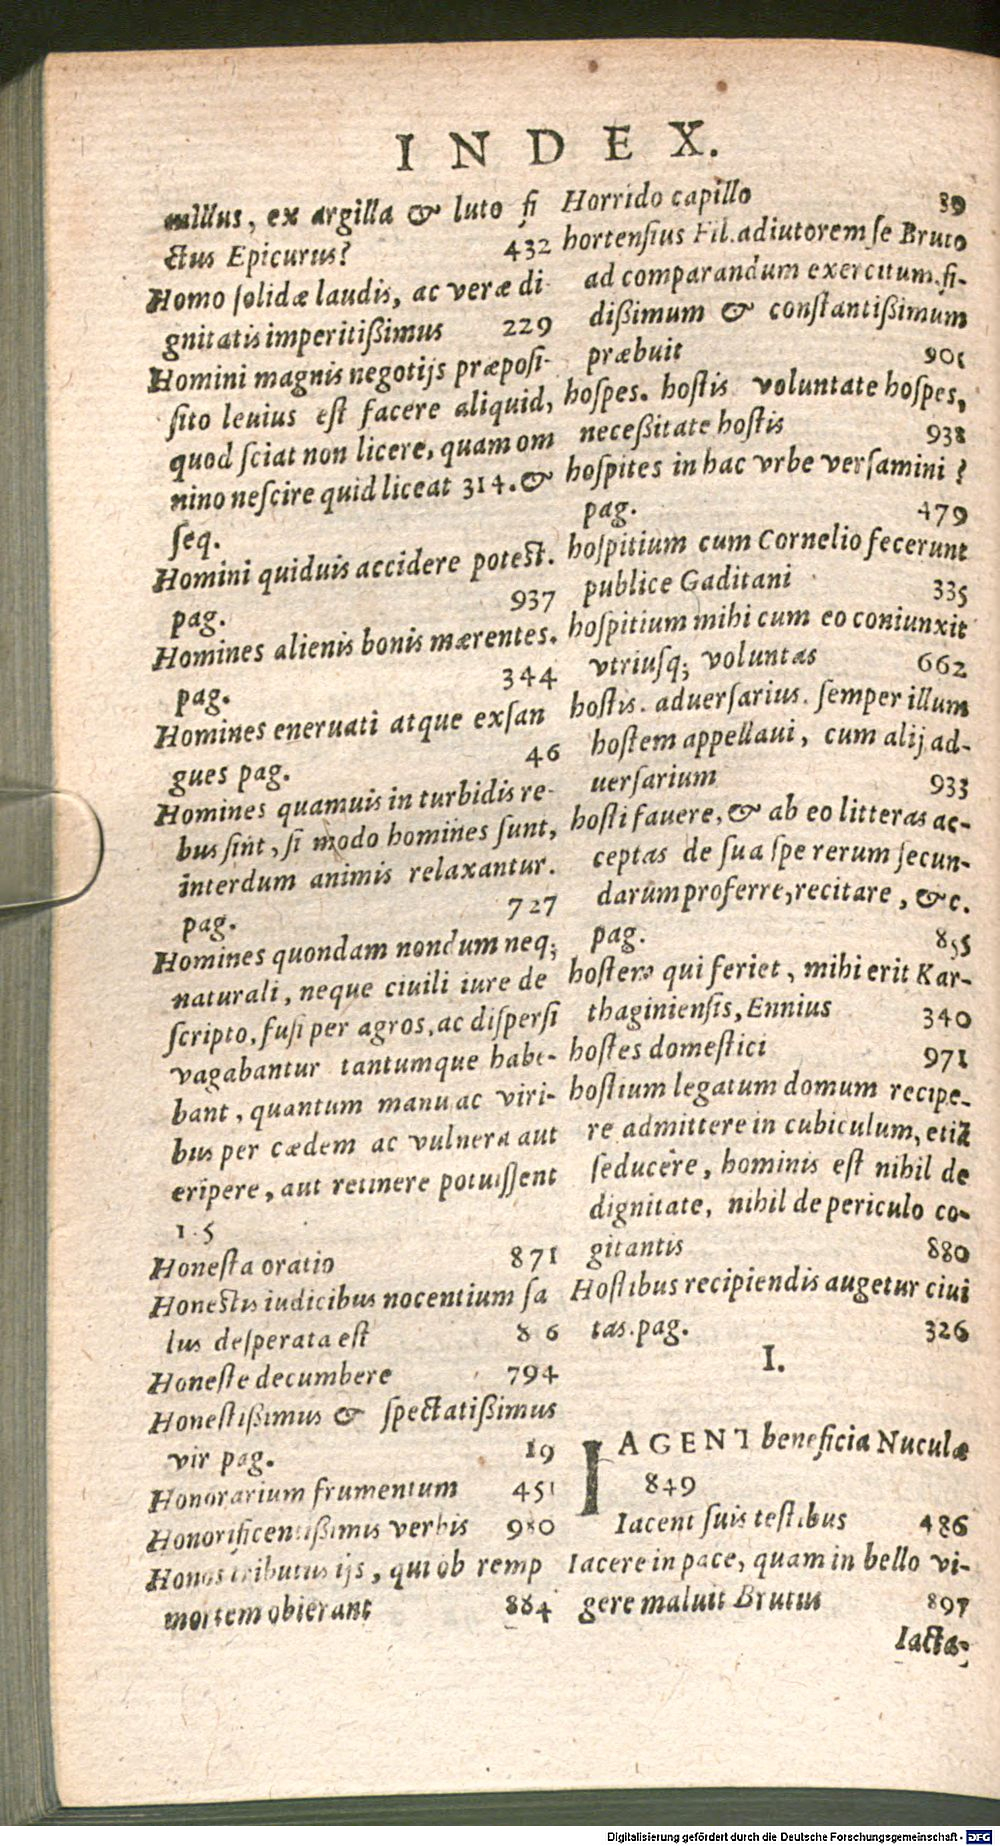 INDEX.
ex argilla & luto fi
ctus Epicurus? 432
Homo ſolidæ laudis, ac veræ di
gnitatis imperitißimus 229
Homini magnis negotijs præpoſi-
ſito leuius eſt facere aliquid,
quod ſciat non licere, quam om
nino neſcire quid liceat 314. &
ſeq.
Homini quiduis accidere poteſt.
pag. 937
Homines alienis bonis mærentes.
pag. 344
Homines eneruati atque exſan
gues pag. 46
Homines quamuis in turbidis re-
bus ſint, ſi modo homines ſunt,
interdum animis relaxantur.
pag. 727
Homines quondam nondum neq;
naturali, neque ciuili iure de
ſcripto, fuſi per agros, ac diſperſi
vagabantur tantumque habe-
bant, quantum manu ac viri-
bus per cædem ac vulnera aut
eripere, aut retinere potuiſſent
1.5
Honeſta oratio 871
Honeſtis iudicibus nocentium ſa
lus deſperata eſt 86
Honeſte decumbere 794
Honeſtißimus & ſpectatißimus
vir pag. 19
Honorarium frumentum 451
Honorificentißimis verbis 980
Honos tributus ijs, qui ob remp
mortem obierant 884
Horrido capillo 39
hortenſius Fil. adiutorem ſe Bruto
ad comparandum exercitum fi-
dißimum & conſtantißimum
præbuit 901
hoſpes. hoſtis voluntate hoſpes,
neceßitate hoſtis 938
hoſpites in hac vrbe verſamini?
pag. 479
hoſpitium cum Cornelio fecerunt
publice Gaditani 335
hoſpitium mihi cum eo coniunxit
vtriuſq; voluntas 662
hoſtis. aduerſarius. ſemper illum
hoſtem appellaui, cum alij ad-
uerſarium 933
hoſti fauere, & ab eo litteras ac-
ceptas de ſua ſpe rerum ſecun-
darum proferre, recitare, &c.
pag. 855
hoſtem qui feriet, mihi erit Kar-
thaginienſis, Ennius 340
hoſtes domeſtici 971
hoſtium legatum domum recipe-
re admittere in cubiculum, etiã
ſeducere, hominis eſt nihil de
dignitate, nihil de periculo co-
gitantis 880
Hoſtibus recipiendis augetur ciui
tas. pag. 326
I.
IAGENT beneficia Nuculæ
849
Iacent ſuis teſtibus 486
Iacere in pace, quam in bello vi-
gere maluit Brutus 897
Iacta-
Digitalisierung gefördert durch die Deutsche Forschungsgemeinschaft - DFG